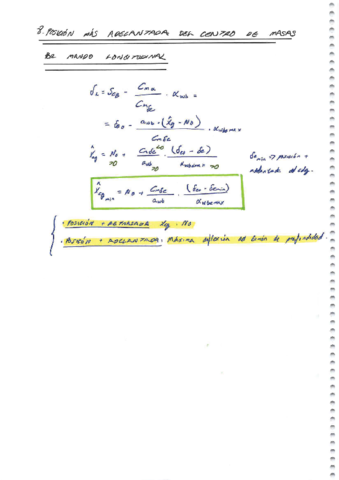 8. POSICIÓN MÁS ADELANTADA DEL CENTRO DE MASAS
POR MANDO LONGITUDINAL
δe = δe0 - Cmα / Cmδe · αwb =
= δe0 - awb · (x̂cg - N0) / Cmδe · αwb max
x̂cg = N0 + Cmδe <0 / awb · (δe0 - δe) / αwb max
>0 >0 >0
δe min → posición +
adelantada del cdg.
x̂cg min = N0 + Cmδe / awb · (δe0 - δemin) / αwb max
· POSICIÓN + RETRASADA: xcg = N0
· POSICIÓN + ADELANTADA: máxima deflexión del timón de profundidad.